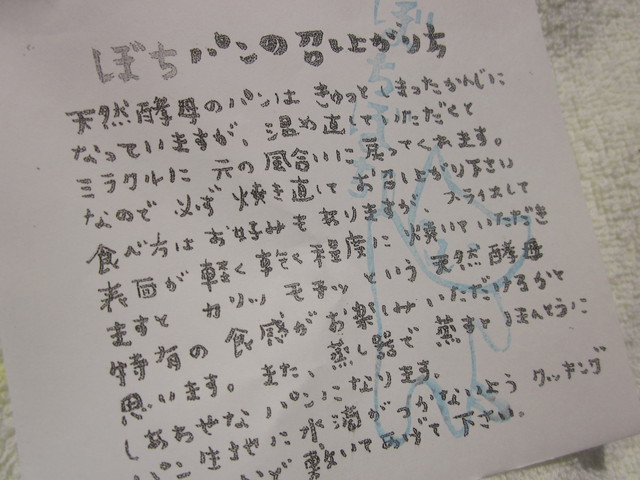 ぼちパンの召し上がり方
天然酵母のパンは きゅっと しまったかんじに
なっていますが、温め直していただくと
ミラクルに 元の風合いに戻ってくれます。
なので 必ず 焼き直して お召し上がり下さい
食べ方は お好みも ありますが スライスして
表面が 軽く 乾く 程度に 焼いていただき
ますと カリッ モチッ という 天然酵母
特有の 食感が お楽しみ いただけるかと
思います。 また、 蒸し器で 蒸すと ほんとうに
しあわせな パンに なります。
パン生地に水滴がつかないよう クッキング
など 敷いてあげて 下さい。